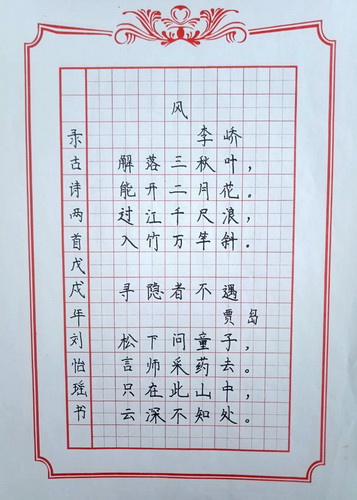 风
李峤
解落三秋叶，
能开二月花。
过江千尺浪，
入竹万竿斜。
寻隐者不遇
贾岛
松下问童子，
言师采药去。
只在此山中，
云深不知处。
录古诗两首戊戌年刘怡瑶书